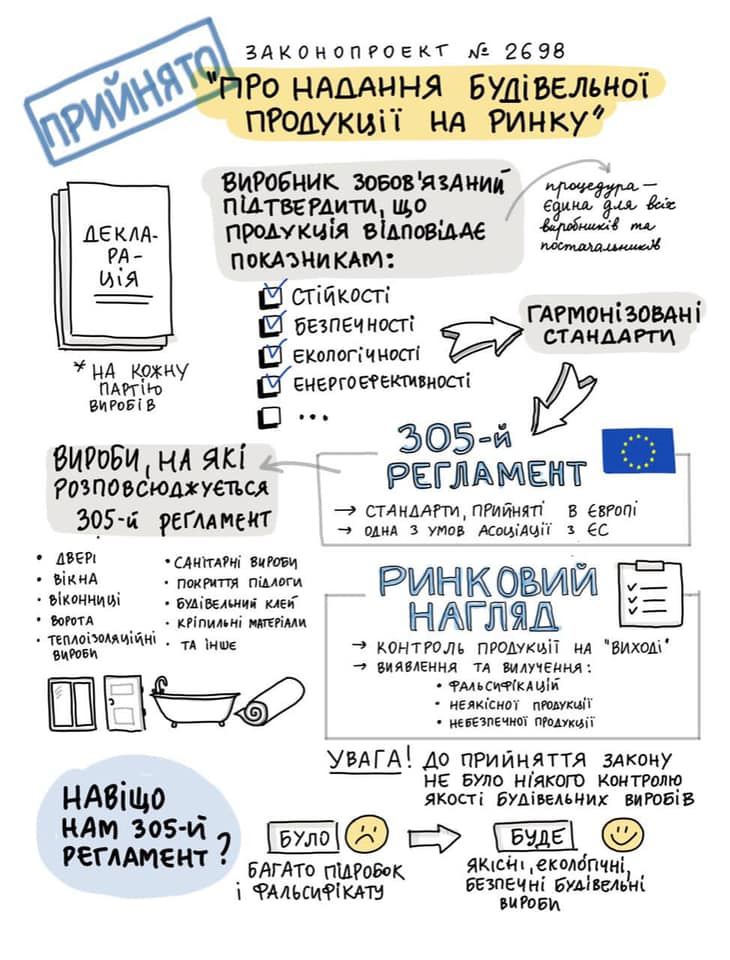 ПРИЙНЯТО
ЗАКОНОПРОЕКТ № 2698
"ПРО НАДАННЯ БУДІВЕЛЬНОЇ
ПРОДУКЦІЇ НА РИНКУ"
ДЕКЛА-
РА-
ЦІЯ
* НА КОЖНУ
ПАРТІЮ
ВИРОБІВ
ВИРОБНИК ЗОБОВ'ЯЗАНИЙ
ПІДТВЕРДИТИ, ЩО
ПРОДУКЦІЯ ВІДПОВІДАЄ
ПОКАЗНИКАМ:
процедура –
єдина для всіх
виробників та
постачальників
СТІЙКОСТІ
БЕЗПЕЧНОСТІ
ЕКОЛОГІЧНОСТІ
ЕНЕРГОЕФЕКТИВНОСТІ
...
ГАРМОНІЗОВАНІ
СТАНДАРТИ
305-й
РЕГЛАМЕНТ
→ СТАНДАРТИ, ПРИЙНЯТІ В ЄВРОПІ
→ ОДНА З УМОВ АСОЦІАЦІЇ З ЄС
ВИРОБИ, НА ЯКІ
РОЗПОВСЮДЖУЄТЬСЯ
305-й РЕГЛАМЕНТ
• ДВЕРІ
• ВІКНА
• ВІКОННИЦІ
• ВОРОТА
• ТЕПЛОІЗОЛЯЦІЙНІ
ВИРОБИ
• САНІТАРНІ ВИРОБИ
• ПОКРИТТЯ ПІДЛОГИ
• БУДІВЕЛЬНИЙ КЛЕЙ
• КРІПИЛЬНІ МАТЕРІАЛИ
• ТА ІНШЕ
РИНКОВИЙ
НАГЛЯД
→ КОНТРОЛЬ ПРОДУКЦІЇ НА "ВИХОДІ"
→ ВИЯВЛЕННЯ ТА ВИЛУЧЕННЯ:
• ФАЛЬСИФІКАЦІЙ
• НЕЯКІСНОЇ ПРОДУКЦІЇ
• НЕБЕЗПЕЧНОЇ ПРОДУКЦІЇ
УВАГА! ДО ПРИЙНЯТТЯ ЗАКОНУ
НЕ БУЛО НІЯКОГО КОНТРОЛЮ
ЯКОСТІ БУДІВЕЛЬНИХ ВИРОБІВ
НАВІЩО
НАМ 305-Й
РЕГЛАМЕНТ?
БУЛО
БАГАТО ПІДРОБОК
І ФАЛЬСИФІКАТУ
БУДЕ
ЯКІСНІ, ЕКОЛОГІЧНІ,
БЕЗПЕЧНІ БУДІВЕЛЬНІ
ВИРОБИ